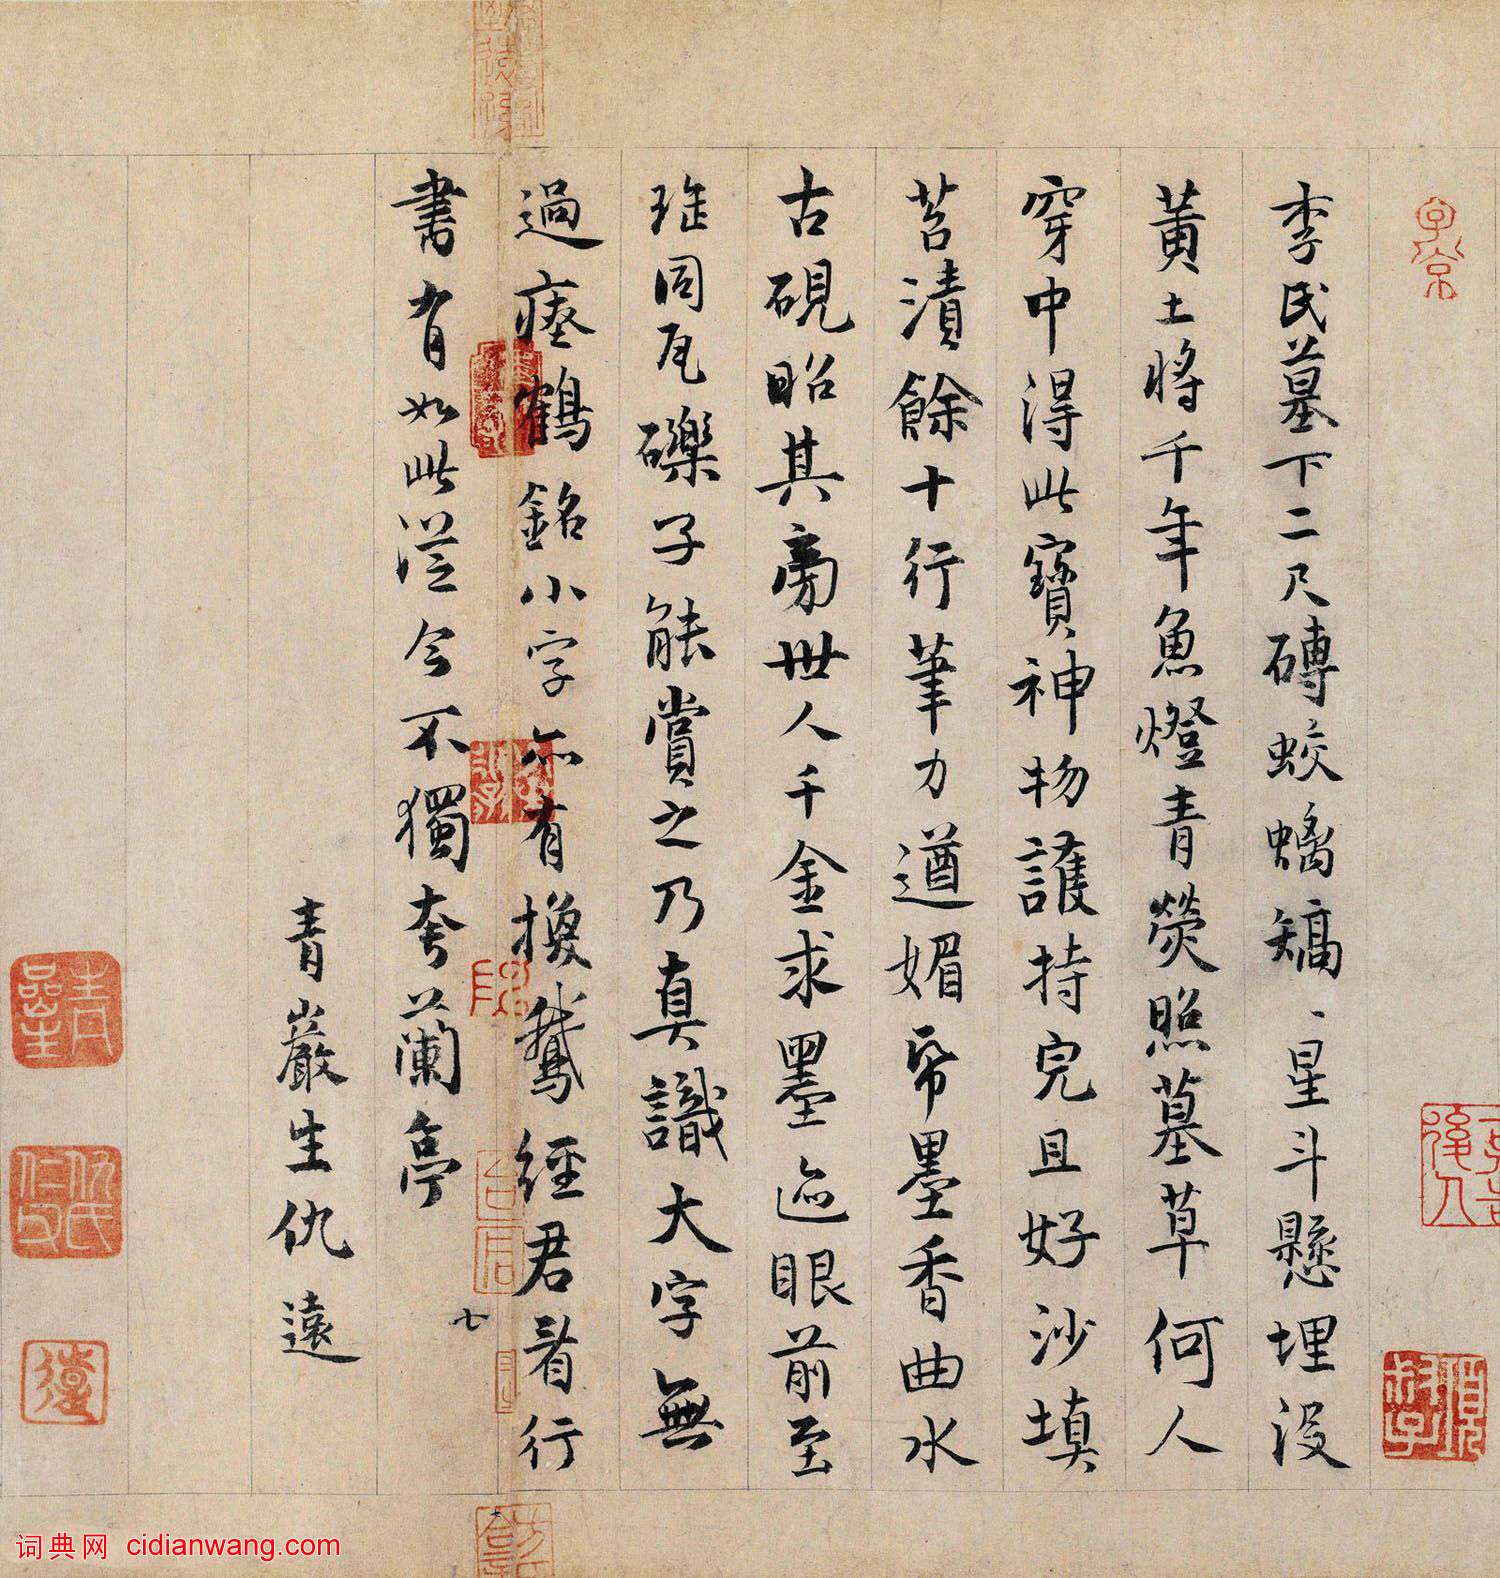 李氏墓下二尺磚蛟螭矯、星斗懸埋沒
黄土將千年魚燈青熒照墓草何人
穿中得此寶神物護持完且好沙填
苔漬餘十行筆力遒媚帋墨香曲水
古硯昭其旁世人千金求墨迹眼前至
珤同瓦礫子能賞之乃真識大字無
過瘞鶴銘小字亦有換鵝經君看行
書有如此從今不獨夸蘭亭
青巖生仇遠
七
詞典网 cidianwang.com